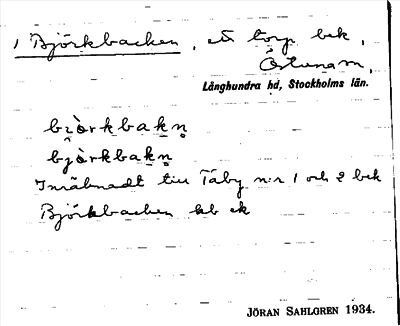 1 Björkbacken, ett torp bek,
Östuna sn,
Långhundra hd, Stockholms län.
bi̯òrkbakn̥
bjòrkbakn̥
Inräknadt till Täby n:r 1 och 2 bek
Björkbacken kb ek
JÖRAN SAHLGREN 1934.